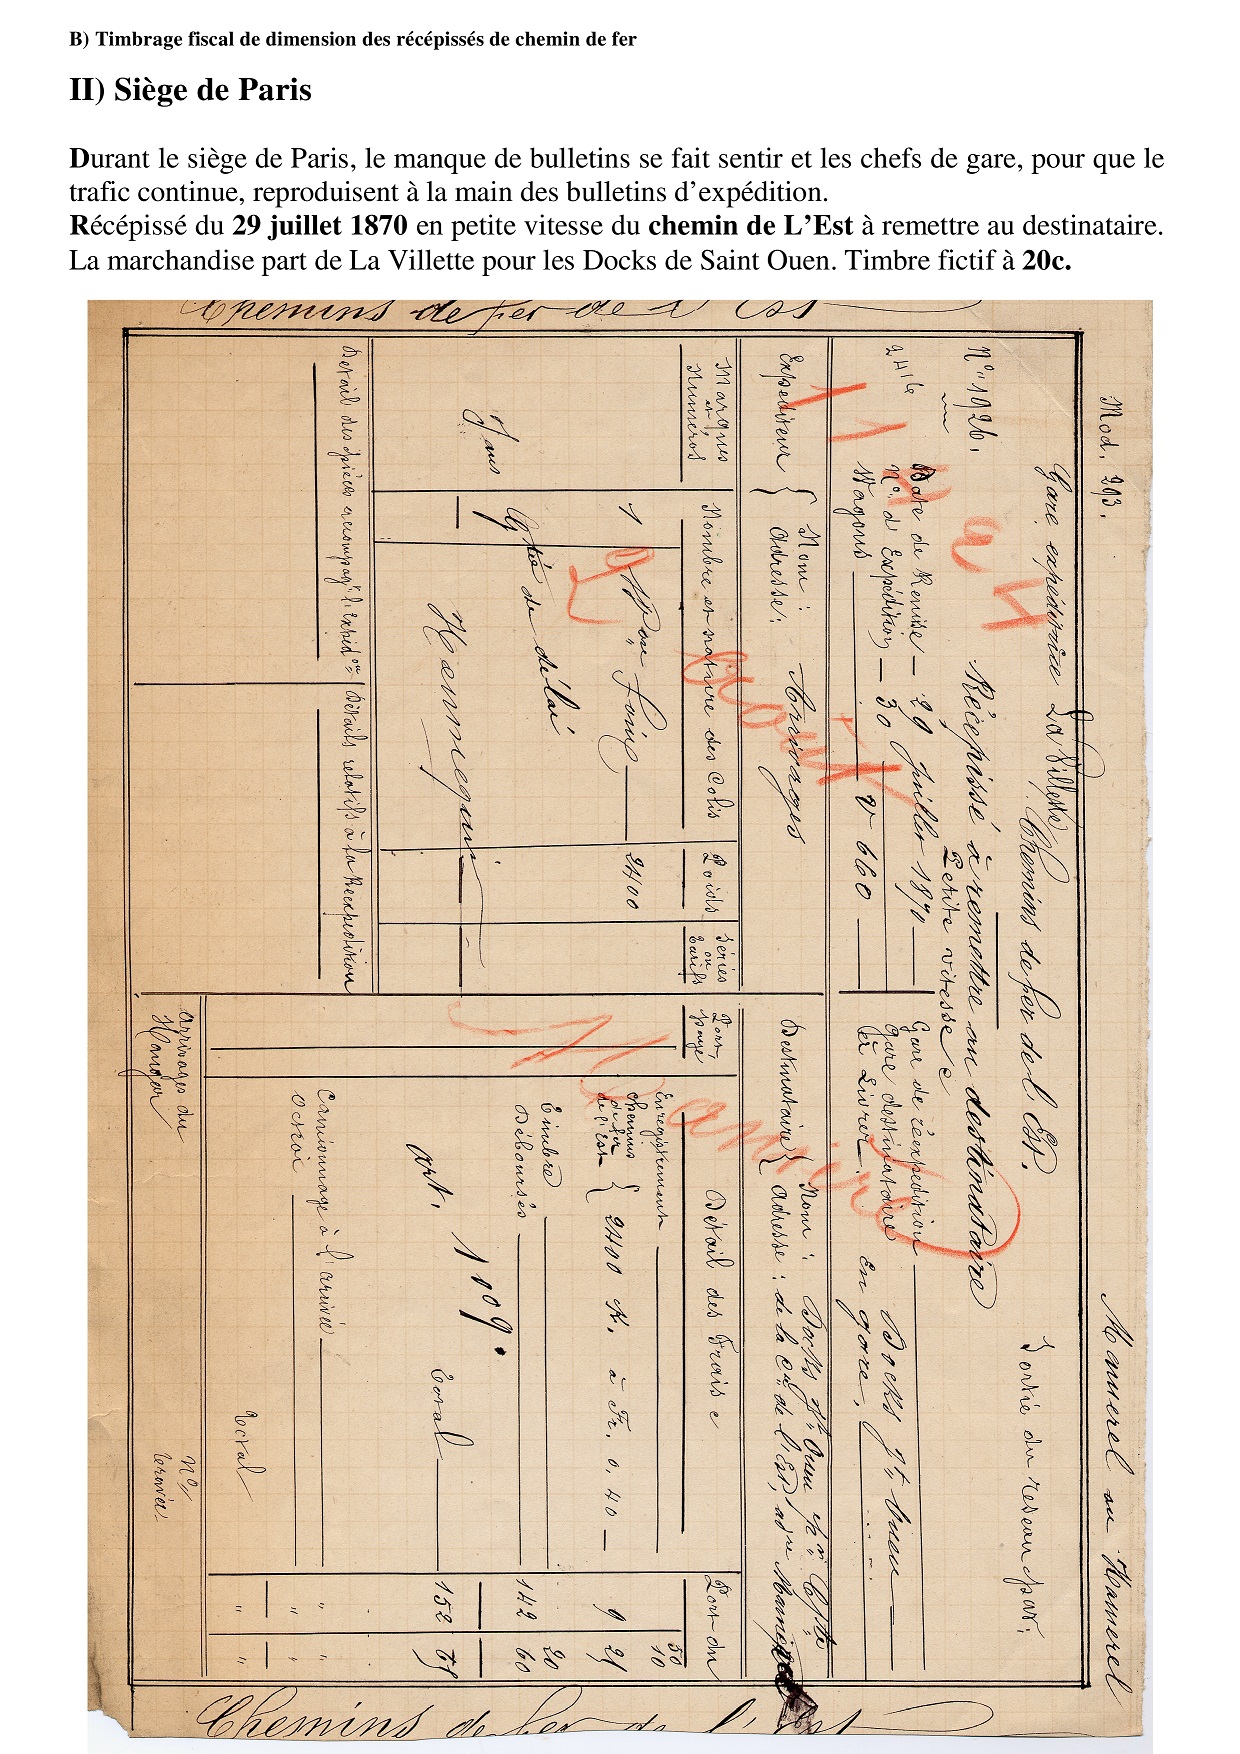 B) Timbrage fiscal de dimension des récépissés de chemin de fer
II) Siège de Paris
Durant le siège de Paris, le manque de bulletins se fait sentir et les chefs de gare, pour que le
trafic continue, reproduisent à la main des bulletins d’expédition.
Récépissé du 29 juillet 1870 en petite vitesse du chemin de L’Est à remettre au destinataire.
La marchandise part de La Villette pour les Docks de Saint Ouen. Timbre fictif à 20c.
Chemins de fer de l'Est
Mod. 293.
Mamerel ou Hamerel
Gare expéditrice La Villette
Chemins de fer de l'Est.
Sortie du reseau par:
N° 1926.
Récépissé à remettre au destinataire
Petite vitesse
2416
Date de Remise — 29 Juillet 1870
N° d'Expédition — 30
Wagons — 660
Gare de réexpédition
Gare destinataire Docks St Ouen
à Livrer. En gare.
Expediteur { Nom:
Adresse: Arrivages
Destinataire { Nom: Docks St Ouen
Adresse: de la Cie de l'Est,
Marques et Numéros
Nombre et nature des Colis
Poids
Séries ou Tarifs
Port payé
Détail des Frais
Port du
1
2400
Enregistrement
10
Chemins de fer de l'Est { 2400 K. à Fr. 0,40 —
9
Timbre
20
Débourses
142 60
de délai
Hennequin
art. 1009.
Total
152
Camionnage à l'arrivée
Octroi
Total
Détail des pièces accompagt l'expédon
Détails relatifs à la Réexpédition
Arrivages du
Hangar
No
Chemins de fer de l'Est